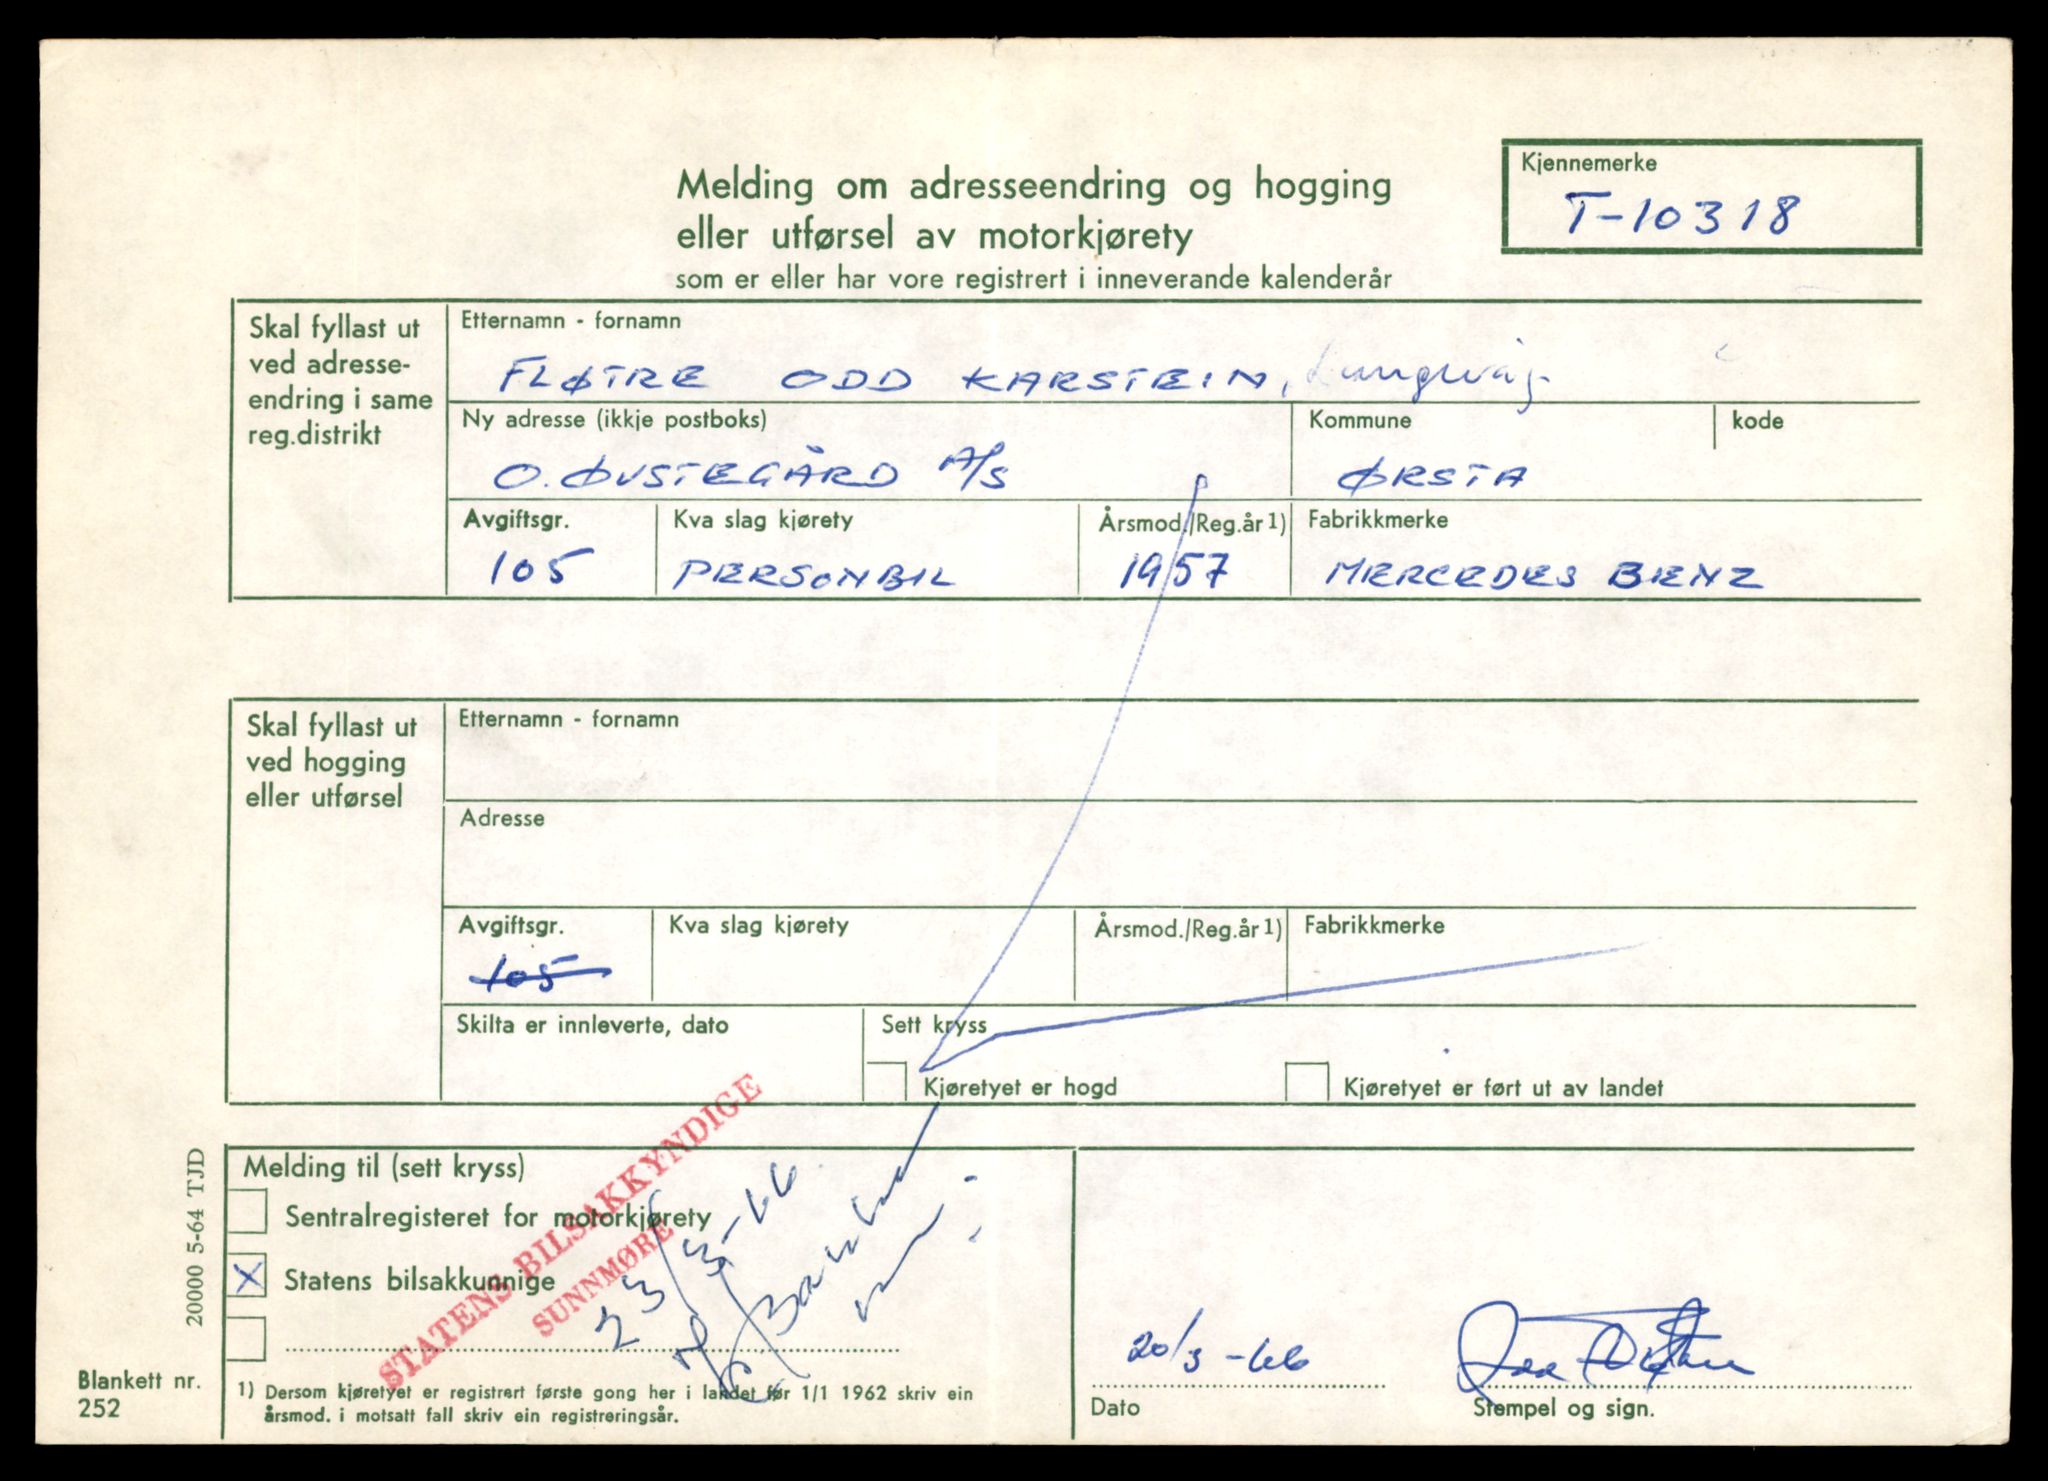 Melding om adresseendring og hogging
eller utførsel av motorkjørety
som er eller har vore registrert i inneverande kalenderår
Kjennemerke
T-10318
Skal fyllast ut
ved adresse-
endring i same
reg.distrikt
Etternamn - fornamn
FLØTRE ODD KARSTEIN, Langevåg
Ny adresse (ikkje postboks)
O. ØVSTEGÅRD A/S
Kommune
kode
ØRSTA
Avgiftsgr.
105
Kva slag kjørety
PERSONBIL
Årsmod./Reg.år 1)
1957
Fabrikkmerke
MERCEDES BENZ
Skal fyllast ut
ved hogging
eller utførsel
Etternamn - fornamn
Adresse
Avgiftsgr.
105
Kva slag kjørety
Årsmod./Reg.år 1)
Fabrikkmerke
Skilta er innleverte, dato
Sett kryss
Kjøretyet er hogd
Kjøretyet er ført ut av landet
Melding til (sett kryss)
Sentralregisteret for motorkjørety
X Statens bilsakkunnige
STATENS BILSAKKYNDIGE
SUNNMØRE
23/3-66
20/3-66
Dato
Stempel og sign.
1) Dersom kjøretyet er registrert første gong her i landet før 1/1 1962 skriv ein
årsmod. i motsatt fall skriv ein registreringsår.
20000 5-64 TJD
Blankett nr.
252